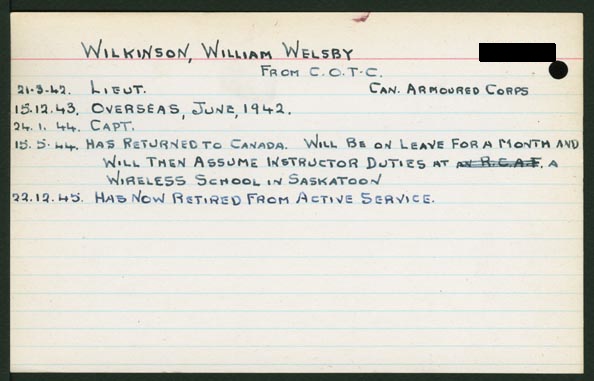 WILKINSON, WILLIAM WELSBY
FROM C.O.T.C.
21-3-42. LIEUT. CAN. ARMOURED CORPS
15.12.43. OVERSEAS, JUNE, 1942.
24.1.44. CAPT.
15.5.44. HAS RETURNED TO CANADA. WILL BE ON LEAVE FOR A MONTH AND
WILL THEN ASSUME INSTRUCTOR DUTIES AT AN R.C.A.F. A
WIRELESS SCHOOL IN SASKATOON
22.12.45. HAS NOW RETIRED FROM ACTIVE SERVICE.